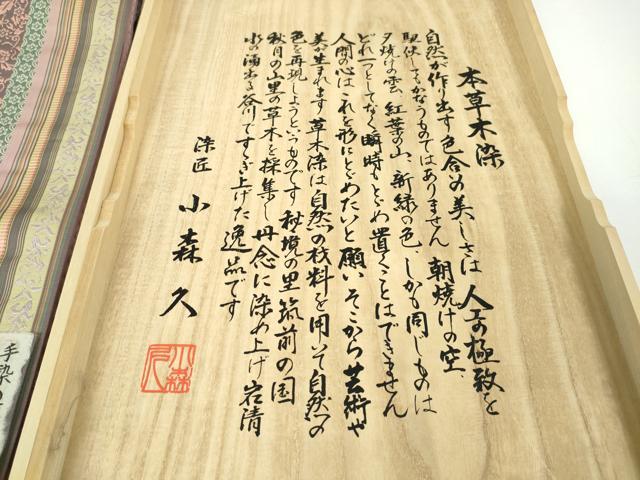 本草木染
自然が作り出す色合の美しさは 人工の極致を
駆使してもかなうものではありません 朝焼けの空、
夕焼けの雲、紅葉の山、新緑の色、しかも同じものは
どれ一つとしてなく瞬時もとどめ置くことはできません
人間の心はこれを形にとどめたいと願い そこから芸術や
美が生まれます 草木染は自然の材料を用いて自然の
色を再現しようというものです 秘境の里筑前の国
秋月の山里の草木を採集し 丹念に染め上げ岩清
水の湧出る谷川ですすぎ上げた逸品です
染匠 小森久
小森久
手染め